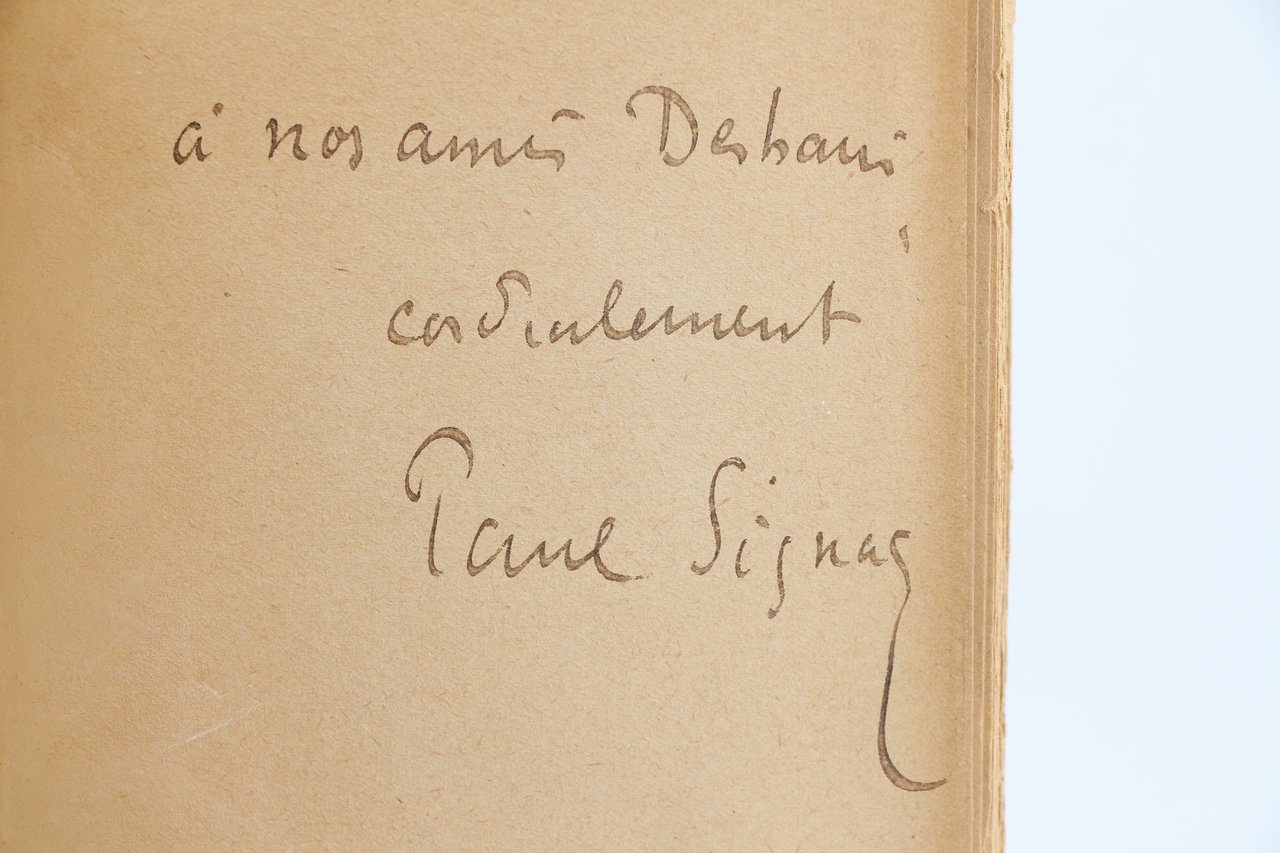 à nos amis Deshairs
cordialement
Paul Signac